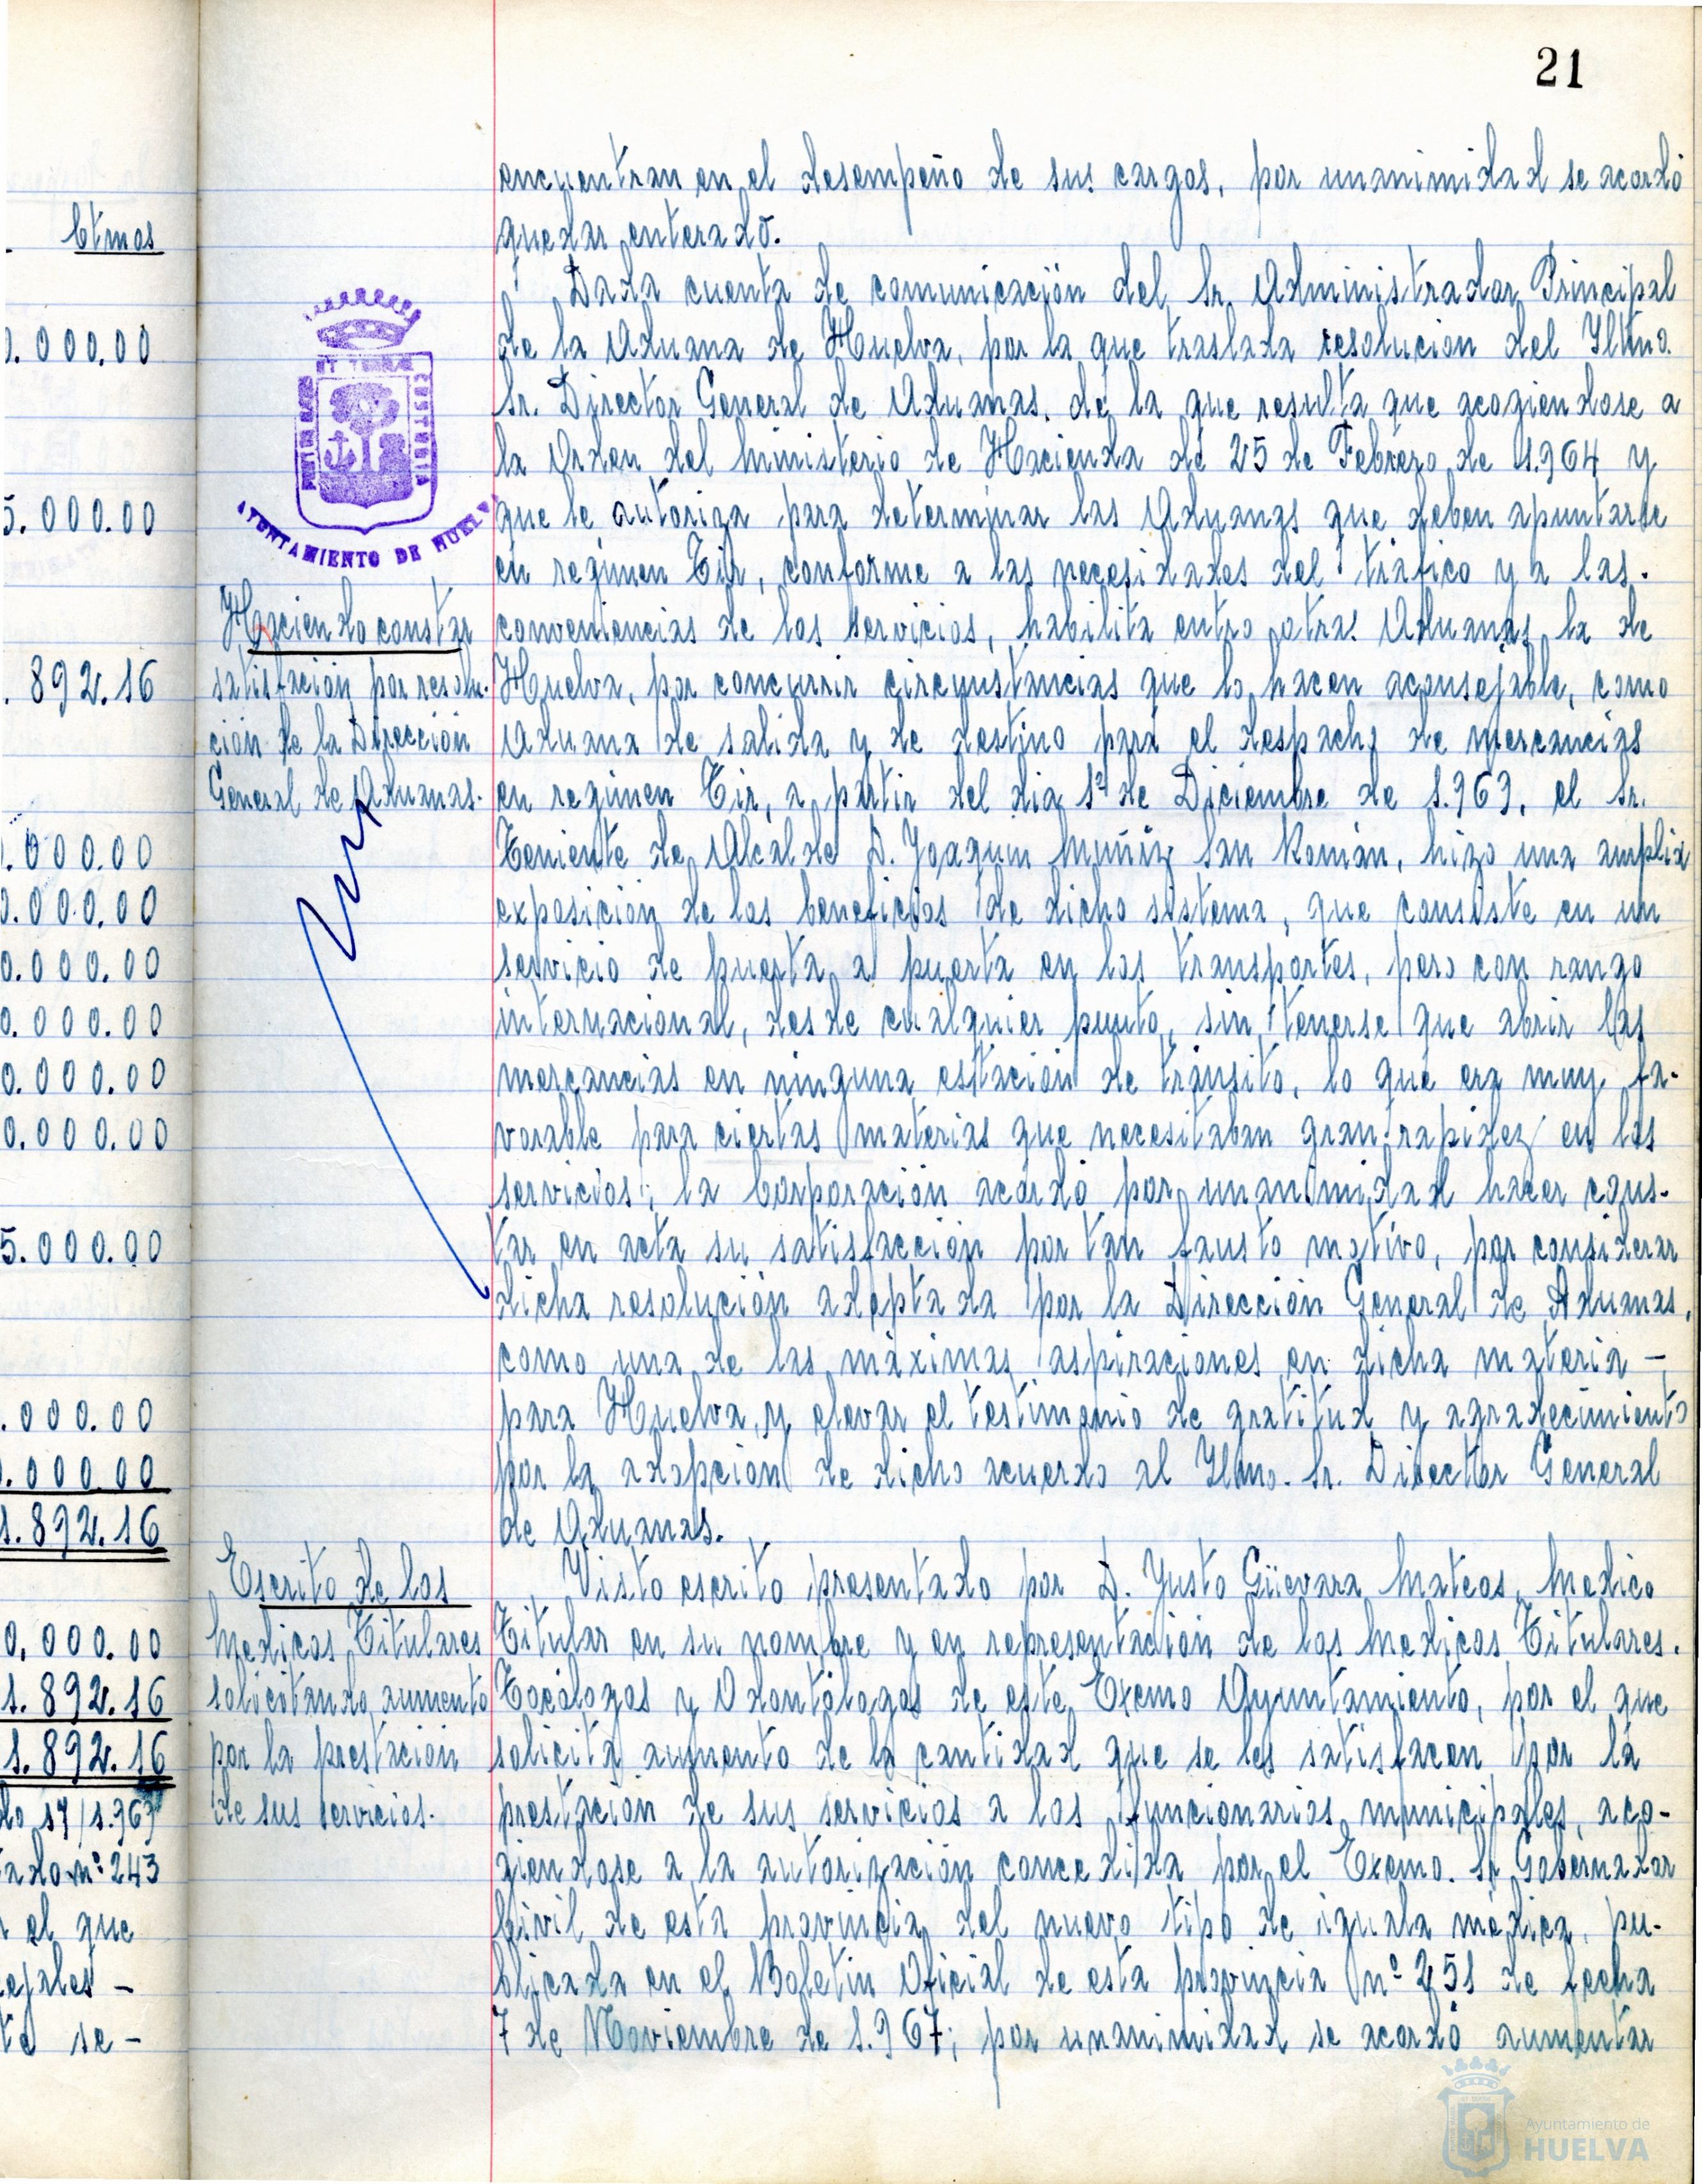 21
encuentran en el desempeño de sus cargos, por unanimidad se acordó
quedar enterado.
Dada cuenta de comunicación del Sr. Administrador Principal
de la Aduana de Huelva, por la que traslada resolucion del Iltmo.
Sr. Director General de Aduanas, de la que resulta que acogiendose a
la Orden del Ministerio de Hacienda de 25 de Febrero de 1.964 y
que le autoriza para determinar las Aduanas que deben apuntarse
en regimen Tir, conforme a las necesidades del tráfico y a las.
conveniencias de los servicios, habilita entre otras Aduanas, la de
Huelva, por concurrir circunstancias que lo hacen aconsejable, como
Aduana de salida y de destino para el despacho de mercancias
en regimen Tir, a partir del dia 1º de Diciembre de 1.963, el Sr.
Teniente de Alcalde D. Joaquin Muñiz San Román, hizo una amplia
exposición de los beneficios de dicho sistema, que consiste en un
servicio de puerta a puerta en los transportes, pero con rango
internacional, desde cualquier punto, sin tenerse que abrir las
mercancias en ninguna estación de tránsito, lo que era muy fa-
vorable para ciertas materias que necesitaban gran rapidez en los
servicios; la Corporación acordó por unanimidad hacer cons-
tar en acta su satisfacción por tan fausto motivo, por considerar
dicha resolución adoptada por la Dirección General de Aduanas,
como una de las máximas aspiraciones en dicha materia -
para Huelva, y elevar el testimonio de gratitud y agradecimiento
por la adopción de dicho acuerdo al Iltmo. Sr. Director General
de Aduanas.
Visto escrito presentado por D. Justo Güevara Mateos, Medico
Titular en su nombre y en representación de los Medicos Titulares.
Tocólogos y Odontólogos de este Excmo Ayuntamiento, por el que
solicita aumento de la cantidad que se les satisfacen por la
prestación de sus servicios a los funcionarios municipales, aco-
giendose a la autorización concedida por el Excmo. Sr. Gobernador
Civil de esta provincia, del nuevo tipo de iguala médica, pu-
blicada en el Boletin Oficial de esta provincia nº 251 de fecha
7 de Noviembre de 1.967; por unanimidad se acordó aumentar
AYUNTAMIENTO DE HUELVA
Haciendo constar
satisfación por resolu-
ción de la Dirección
General de Aduanas.
Escrito de los
Medicos Titulares
solicitando aumento
por la prestación
de sus servicios.
Ctmos
0.000.00
5.000.00
.892.16
.000.00
0.000.00
0.000.00
0.000.00
0.000.00
0.000.00
5.000.00
.000.00
.000.00
1.892.16
0.000.00
1.892.16
1.892.16
do 17/1.967
tado nº 243
el que
cejales -
se -
Ayuntamiento de
HUELVA